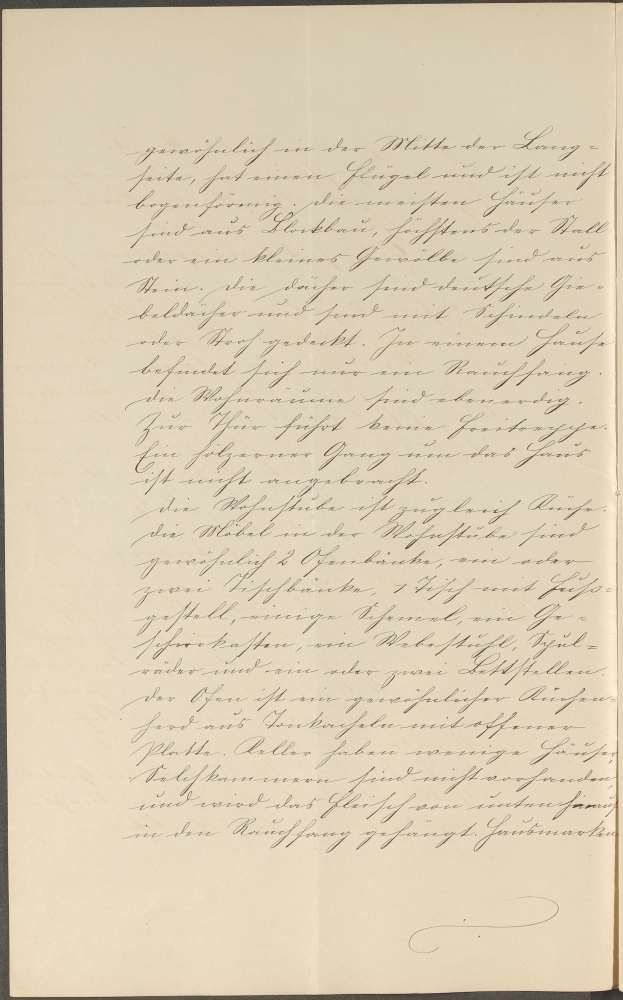 gewöhnlich in der Mitte der Lang=
seite, hat einen Flügel und ist nicht
bogenförmig. Die meisten Häuser
sind aus Blockbau, höchstens der Stall
oder ein kleines Gewölbe sind aus
Stein. Die Dächer sind deutsche Gie=
beldächer und sind mit Schindeln
oder Stroh gedeckt. In einem Hause
befindet sich nur ein Rauchfang.
Die Wohnräume sind ebenerdig.
Zur Thür führt keine Freitreppe.
Ein hölzerner Gang um das Haus
ist nicht angebracht.
Die Wohnstube ist zugleich Küche.
Die Möbel in der Wohnstube sind
gewöhnlich 2 Ofenbänke, ein oder
zwei Tischbänke, 1 Tisch mit Fuß=
gestell, einige Schemel, ein Ge=
schirrkasten, ein Webestuhl, Spul=
räder und ein oder zwei Bettstellen.
Der Ofen ist ein gewöhnlicher Küchen=
herd aus Tonkacheln mit offener
Platte. Keller haben wenige Häuser,
Selchkammern sind nicht vorhanden,
und wird das Fleisch von unten hinauf
in den Rauchfang gehängt. Hausmarken